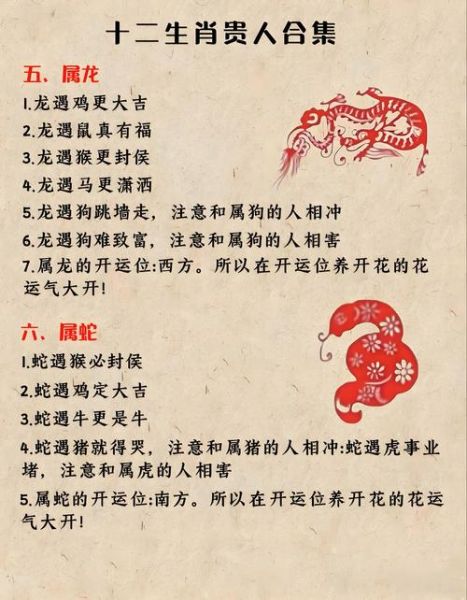 十二生肖贵人合集
五、属龙
1.龙遇鸡更大吉
2.龙遇鼠真有福
3.龙遇猴更封侯
4.龙遇马更潇洒
5.龙遇狗跳墙走，注意和属狗的人相冲
6.龙遇狗难致富，注意和属狗的人相害
7.属龙的开运位:西方。所以在开运位养开花的花
运气大开!
六、属蛇
1.蛇遇猴必封侯
2.蛇遇鸡定大吉
3.蛇遇牛更是牛
4.蛇遇猪就得哭，注意和属猪的人相冲:蛇遇虎事业
堵，注意和属虎的人相害
5.属蛇的开运位:南方。所以在开运位养开花的花运
气大开!